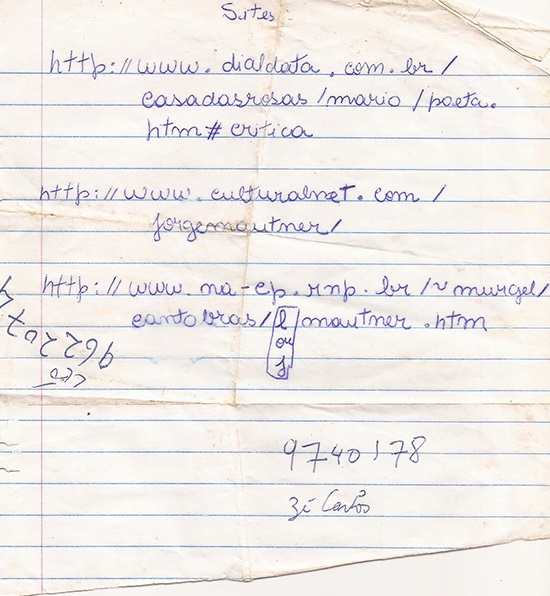 Sites
http://www.dialdata.com.br/
casadasrosas/mario/poeta.
htm#critica
http://www.culturalnet.com/
jorgemautner/
http://www.na-cp.rnp.br/~murgel/
cantobras/l mautner.htm
ou
j
962207
9740178
Zé Carlos